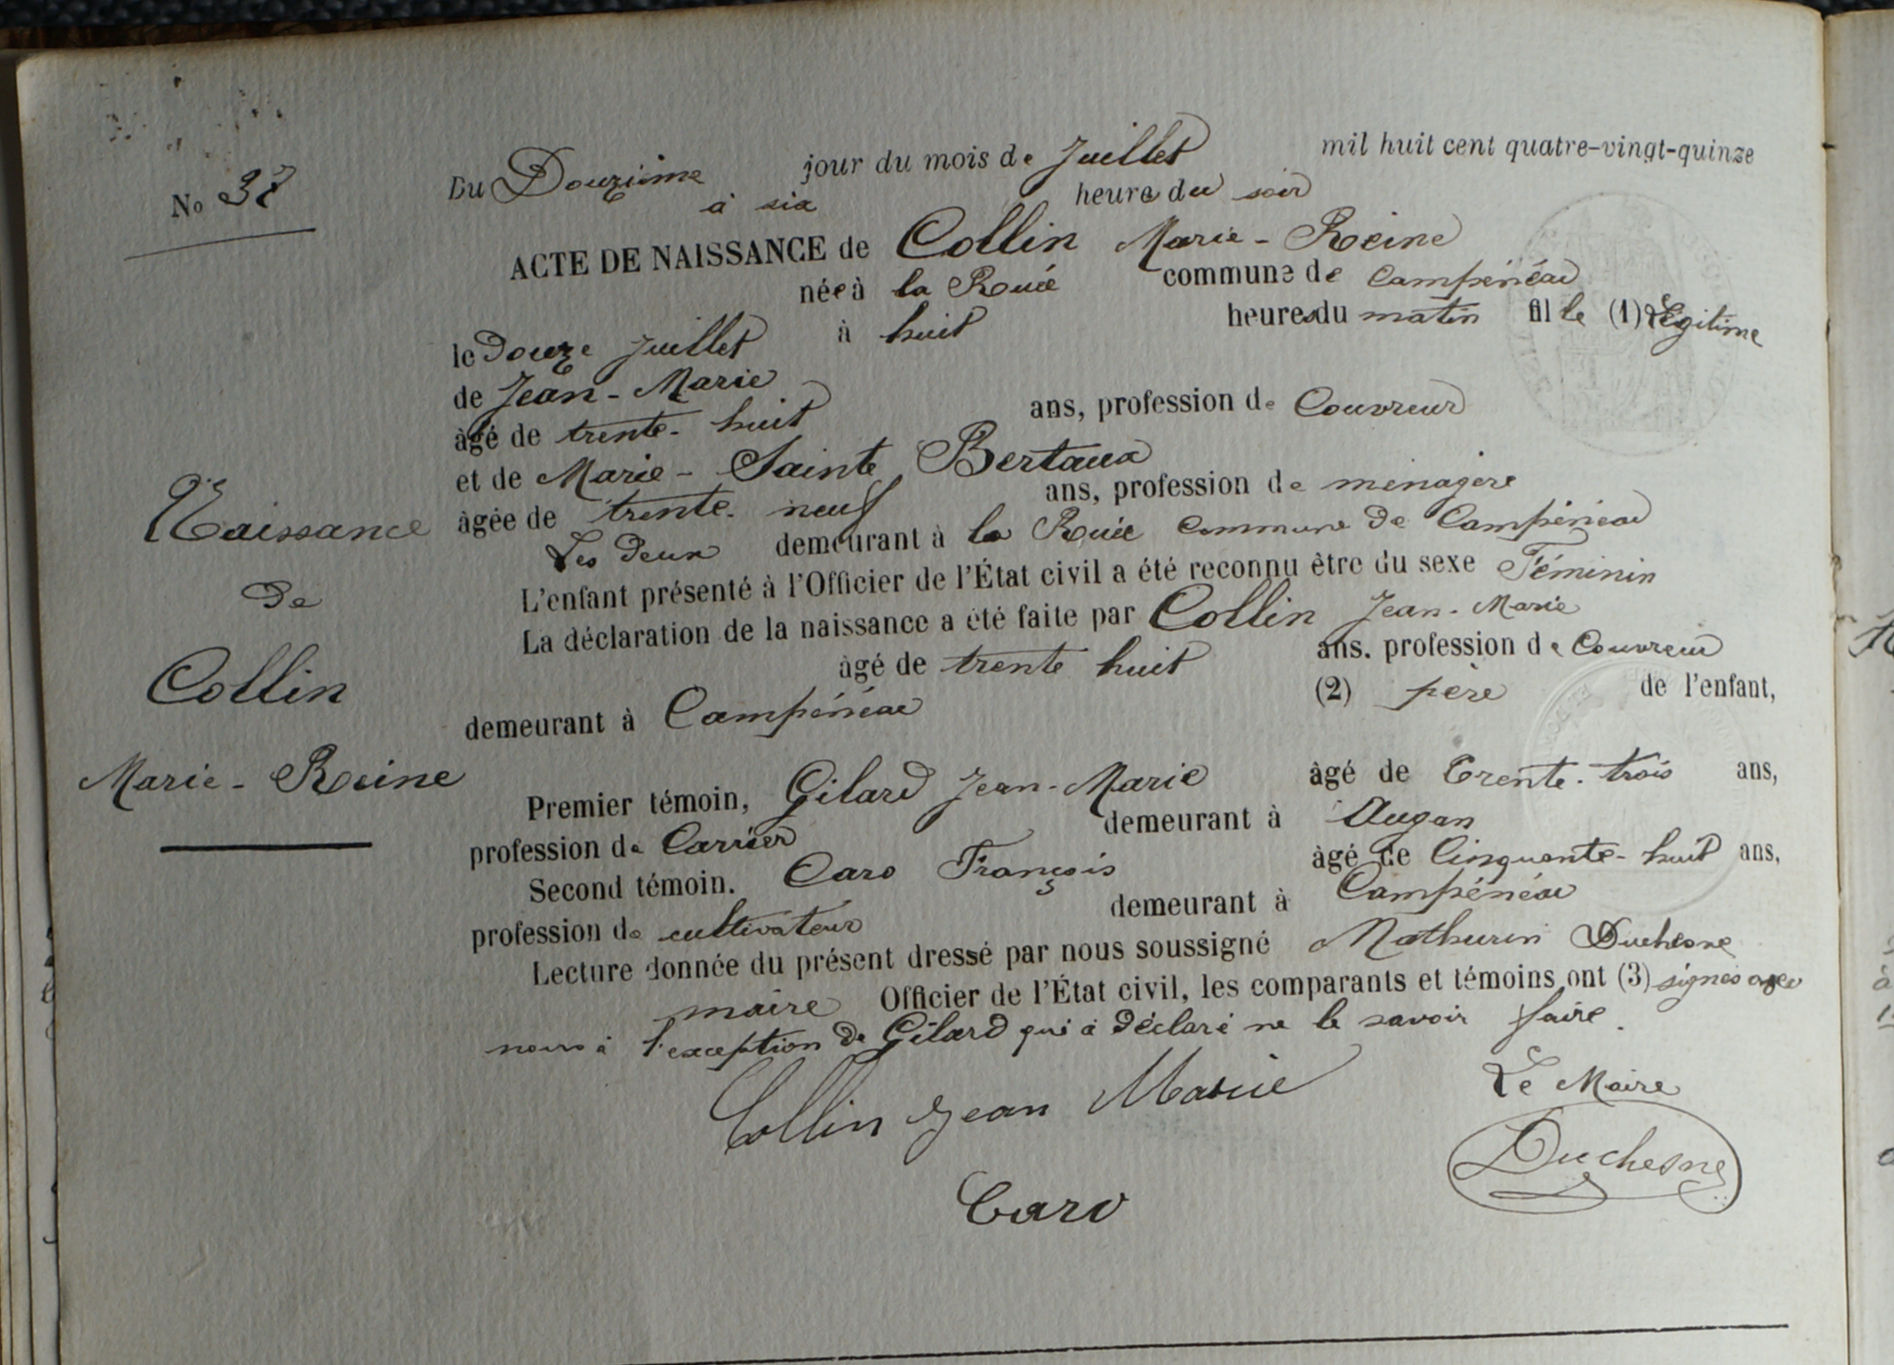 No 37
Du Douzième jour du mois de Juillet mil huit cent quatre-vingt-quinze
à six heure du soir
ACTE DE NAISSANCE de Collin Marie-Reine
née à la Ruée commune de Campénéac
le Douze Juillet à huit heures du matin fille (1) Légitime
de Jean-Marie
âgé de trente-huit ans, profession de Couvreur
et de Marie-Sainte Bertaux
âgée de trente-neuf ans, profession de ménagère
Les deux demeurant à la Ruée commune de Campénéac
L'enfant présenté à l'Officier de l'État civil a été reconnu être du sexe Féminin
La déclaration de la naissance a été faite par Collin Jean-Marie
âgé de trente huit ans. profession de Couvreur
demeurant à Campénéac (2) père de l'enfant,
Premier témoin, Gilard Jean-Marie âgé de trente-trois ans,
profession de Carrier demeurant à Augan
Second témoin. Caro François âgé de Cinquante-huit ans,
profession de cultivateur demeurant à Campénéac
Lecture donnée du présent dressé par nous soussigné Mathurin Duchesne
maire Officier de l'État civil, les comparants et témoins ont (3) signés avec
nous à l'exception de Gilard qui à déclaré ne le savoir faire.
Collin Jean Marie
Le Maire
Duchesne
Caro
Naissance
de
Collin
Marie-Reine